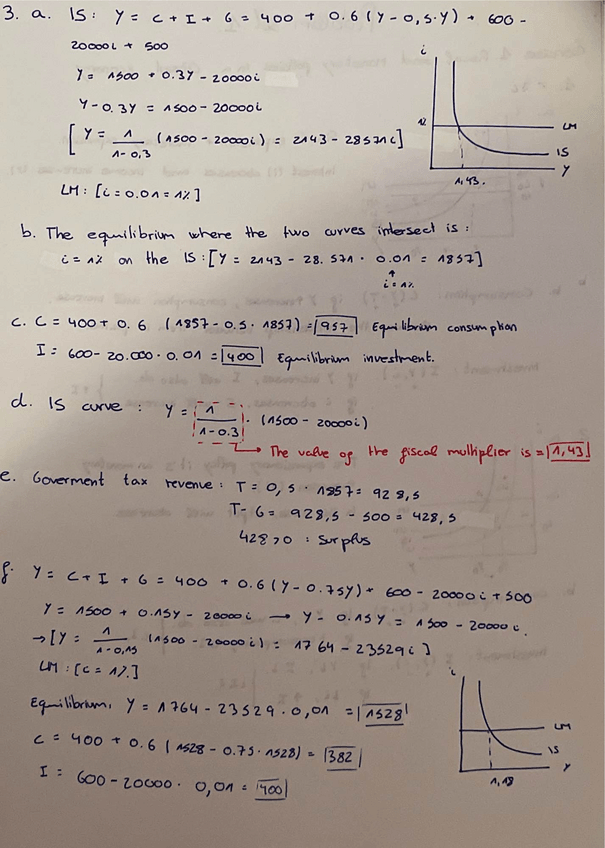 3. a. IS: Y = C + I + G = 400 + 0.6 (Y - 0,5·Y) + 600 -
20000i + 500
Y = 1500 + 0.3Y - 20000i
Y - 0.3Y = 1500 - 20000i
[Y = 1/(1-0,3) (1500 - 20000i) = 2143 - 28571i]
LM: [i = 0.01 = 1%]
i
LM
IS
Y
1,43.
b. The equilibrium where the two curves intersect is:
i = 1% on the IS: [Y = 2143 - 28.571 · 0.01 = 1857]
↑
i = 1%
c. C = 400 + 0.6 (1857 - 0.5 · 1857) = 957 Equilibrium consumption
I = 600 - 20.000 · 0.01 = 400 Equilibrium investment.
d. IS curve: Y = 1/(1-0.3) · (1500 - 20000i)
→ The value of the fiscal multiplier is = 1,43
e. Goverment tax revenue: T = 0,5 · 1857 = 928,5
T - G = 928,5 - 500 = 428,5
428 > 0 : Surplus
f. Y = C + I + G = 400 + 0.6 (Y - 0.75Y) + 600 - 20000i + 500
Y = 1500 + 0.15Y - 20000i → Y - 0.15Y = 1500 - 20000i
→ [Y = 1/(1-0,15) (1500 - 20000i) = 1764 - 23529i]
LM: [i = 1%]
Equilibrium, Y = 1764 - 23529 · 0,01 = 1528
C = 400 + 0.6 (1528 - 0.75 · 1528) = 382
I = 600 - 20000 · 0,01 = 400
i
LM
IS
Y
1,18